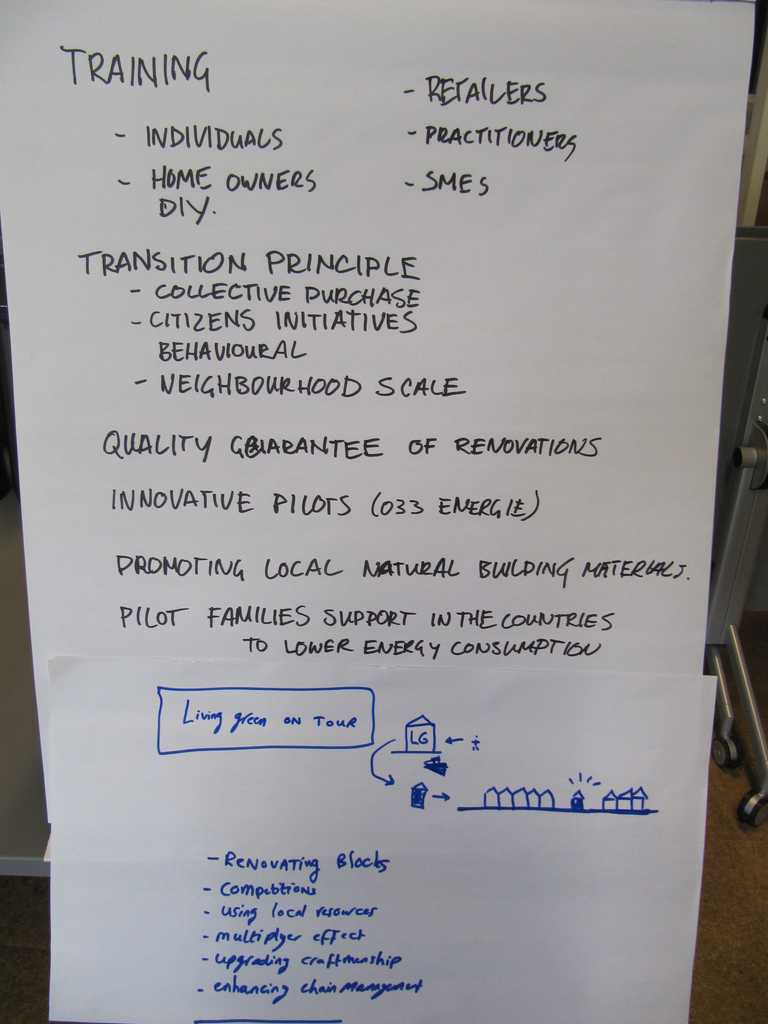 TRAINING
- RETAILERS
- INDIVIDUALS
- PRACTITIONERS
- HOME OWNERS
DIY.
- SMES
TRANSITION PRINCIPLE
- COLLECTIVE PURCHASE
- CITIZENS INITIATIVES
BEHAVIOURAL
- NEIGHBOURHOOD SCALE
QUALITY GUARANTEE OF RENOVATIONS
INNOVATIVE PILOTS (033 ENERGIE)
PROMOTING LOCAL NATURAL BUILDING MATERIALS.
PILOT FAMILIES SUPPORT IN THE COUNTRIES
TO LOWER ENERGY CONSUMPTION
Living green ON TOUR
LG
- RENOVATING Blocks
- Competitions
- using local resources
- multiplyer effect
- upgrading craftmanship
- enhancing chain management